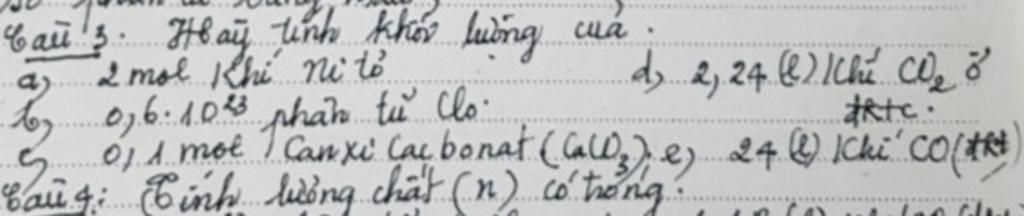 Câu 3. Hãy tính khối lượng của.
a, 2 mol khí ni tơ d, 2,24 (l) khí CO2 ở
b, 0,6.10²³ phân tử Clo. đktc.
c, 0,1 mol Canxi cacbonat (CaCO3). e, 24 (l) khí CO (đkt)
Câu 4: Tính lượng chất (n) có trong.